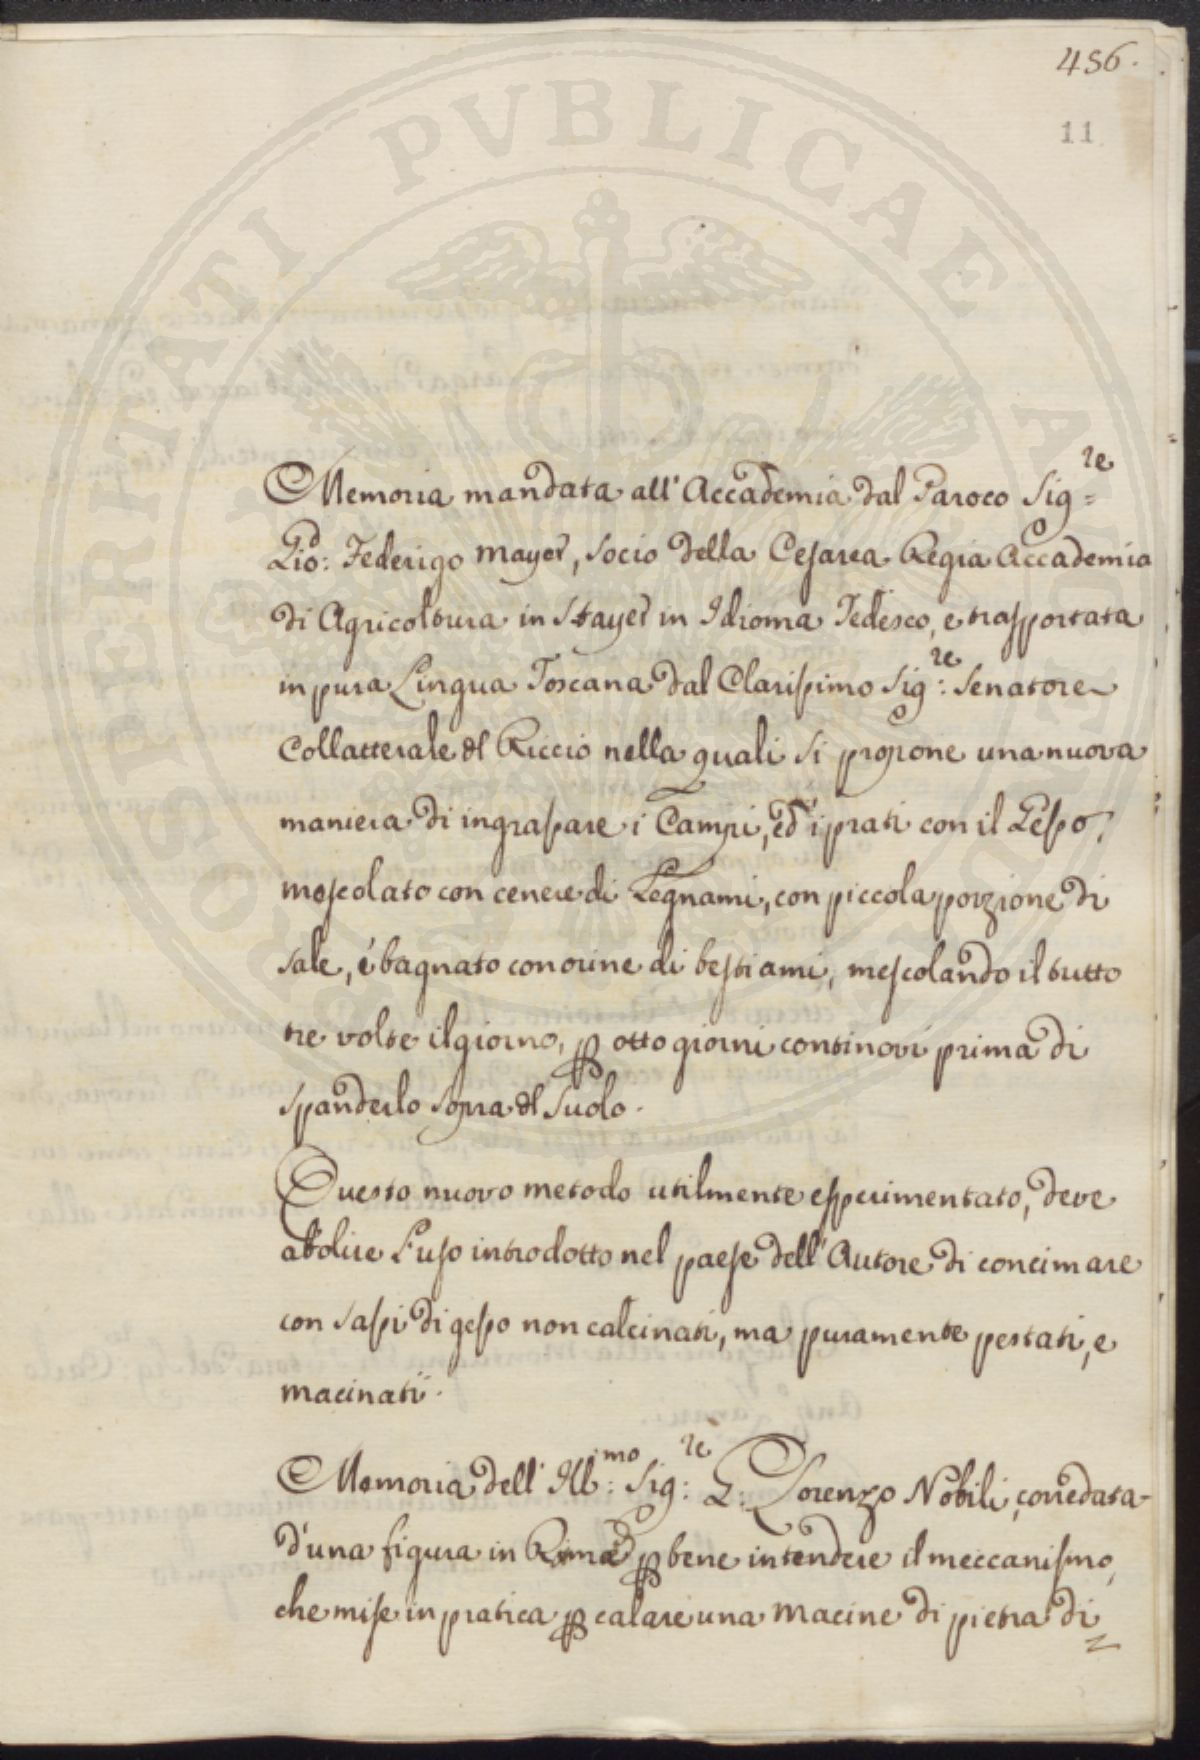 456.
11
PROSPERITATI PVBLICAE AVGENDAE
Memoria mandata all' Accademia dal Paroco Sig:re
Gio: Federigo Mayer, Socio della Cesarea Regia Accademia
di Agricoltura in Stayer in Idioma Tedesco, e trasportata
in pura Lingua Toscana dal Clarissimo Sig:re Senatore
Collatterale del Riccio nella quali si propone una nuova
maniera di ingrassare i Campi, ed i prati con il Gesso,
mescolato con cenere di Legnami, con piccola porzione di
sale, é bagnato con orine di bestiami, mescolando il tutto
tre volte il giorno, per otto giorni continovi prima di
spanderlo sopra del Suolo.
Questo nuovo metodo utilmente esperimentato, deve
abolire l'uso introdotto nel paese dell' Autore di concimare
con sassi di gesso non calcinati, ma puramente pestati, e
macinati.
Memoria dell' Ill:mo Sig:re Lorenzo Nobili, corredata
d'una figura in per bene intendere il meccanismo,
che mise in pratica per calare una Macine di pietra di